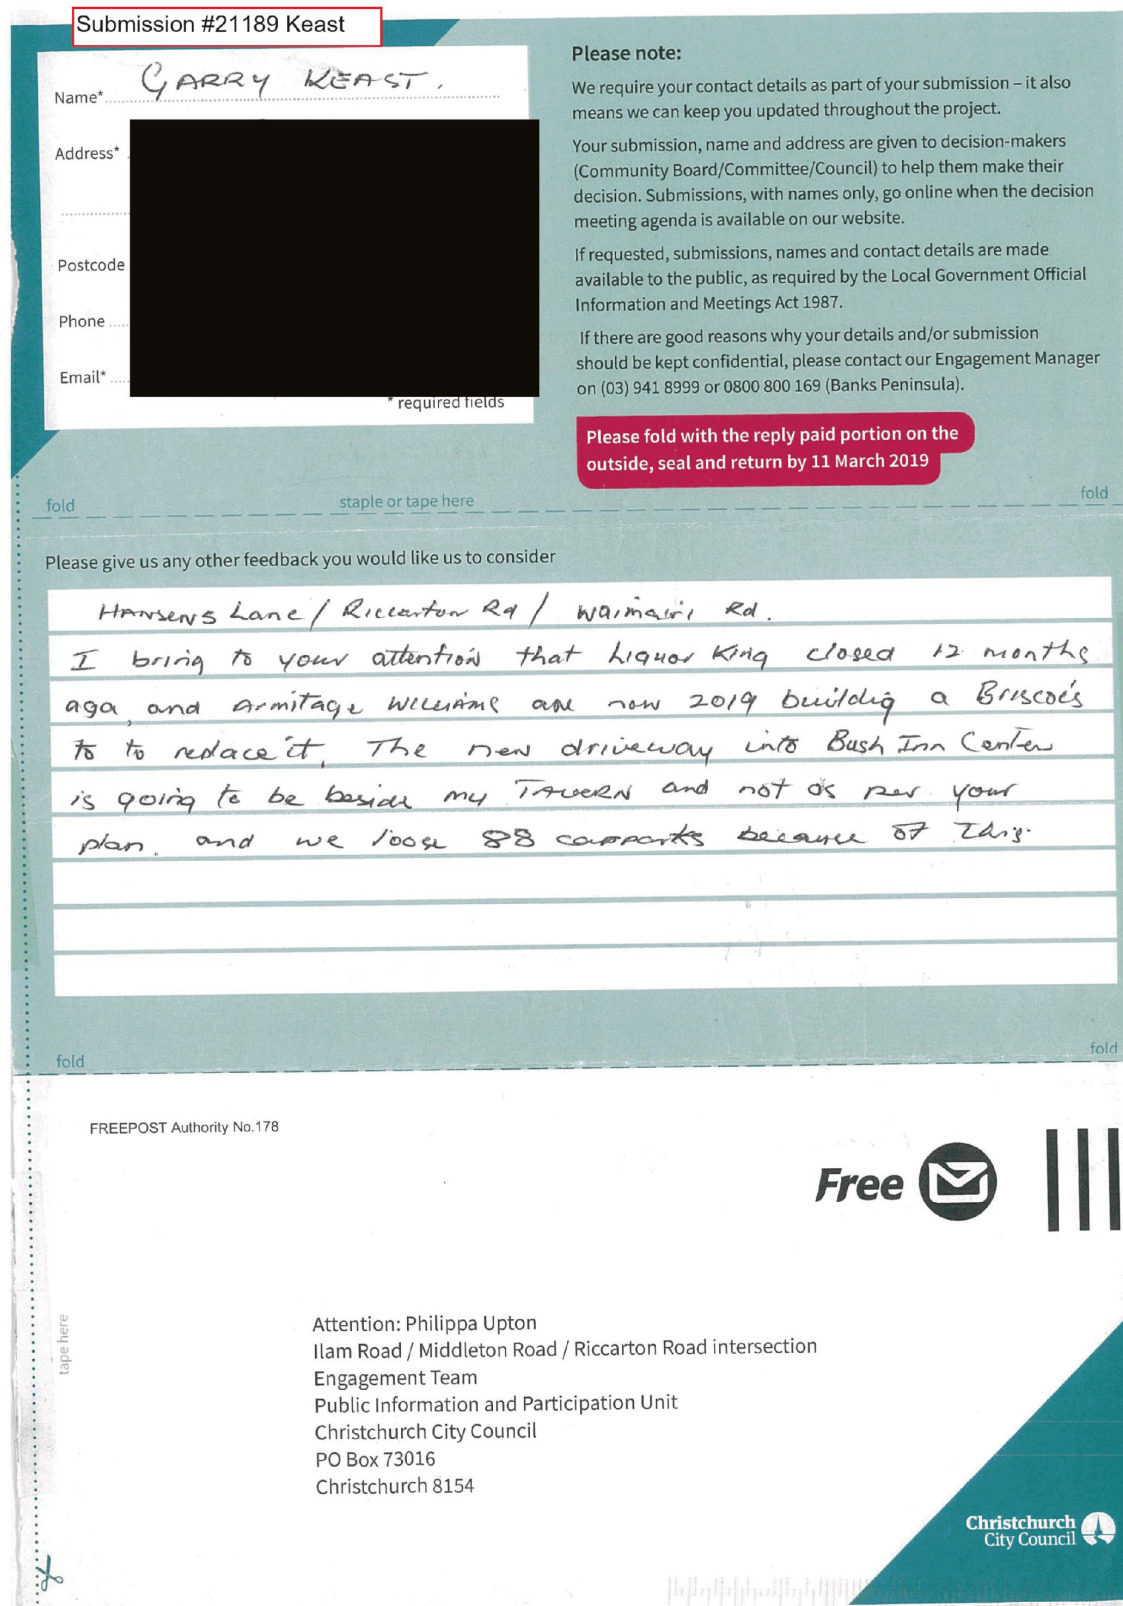 Submission #21189 Keast
Name* GARRY KEAST.
Address*
Postcode
Phone
Email*
* required fields
Please note:
We require your contact details as part of your submission – it also
means we can keep you updated throughout the project.
Your submission, name and address are given to decision-makers
(Community Board/Committee/Council) to help them make their
decision. Submissions, with names only, go online when the decision
meeting agenda is available on our website.
If requested, submissions, names and contact details are made
available to the public, as required by the Local Government Official
Information and Meetings Act 1987.
If there are good reasons why your details and/or submission
should be kept confidential, please contact our Engagement Manager
on (03) 941 8999 or 0800 800 169 (Banks Peninsula).
Please fold with the reply paid portion on the
outside, seal and return by 11 March 2019
fold staple or tape here fold
Please give us any other feedback you would like us to consider
HANSENS Lane / Riccarton Rd / Waimairi Rd.
I bring to your attention that Liquor King closed 12 months
aga, and Armitage Williams are now 2019 buildig a Briscoe's
to to replace it. The new driveway into Bush Inn Center
is going to be beside my TAVERN and not as per your
plan. and we loose 88 carparks because of this.
fold fold
FREEPOST Authority No.178
Free
tape here
Attention: Philippa Upton
Ilam Road / Middleton Road / Riccarton Road intersection
Engagement Team
Public Information and Participation Unit
Christchurch City Council
PO Box 73016
Christchurch 8154
Christchurch
City Council